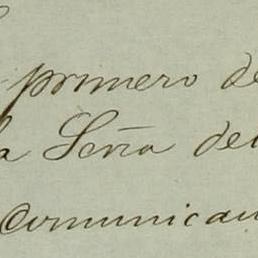 primero de
la Seña del
comunican